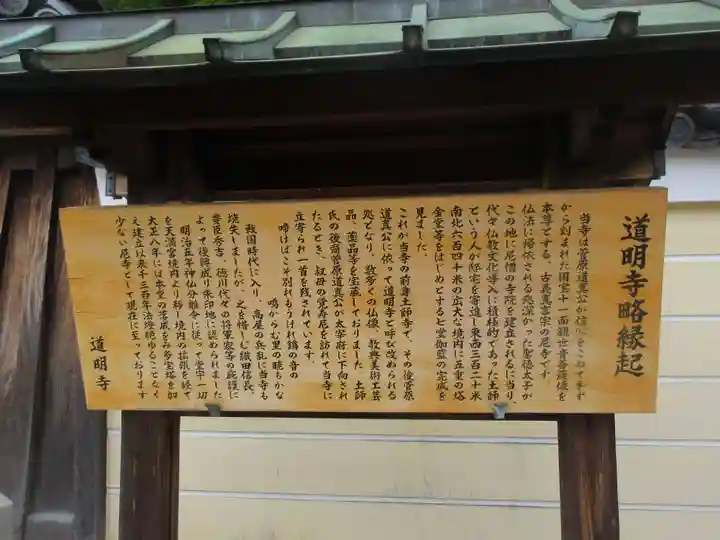 道明寺略縁起
当寺は菅原道真公が信心をこめて手ず
から刻まれた国宝十一面観世音菩薩像を
本尊とする、古義真言宗の尼寺です。
仏法に帰依される志深かった聖徳太子が
この地に尼僧の寺院を建立されるに当り、
代々仏教文化導入に積極的であった土師
という人が邸宅を寄進し東西三百二十米
南北六百四十米の広大な境内に五重の塔
金堂等をはじめとする七堂伽藍の完成を
見ました。
これが当寺の前身土師寺で、その後菅原
道真公に依って道明寺と呼び改められる
処となり、数多くの仏像、教典美術工芸
品、薬品等を宝蔵しておりました 土師
氏の後裔菅原道真公が太宰府に下向され
たるとき、叔母の覚寿尼を訪れて当寺に
立寄られ一首を残されています。
鳴けばこそ別れもうけれ鶏の音の
鳴からむ里の暁もがな
戦国時代に入り、高屋の兵乱に当寺も
焼失しましたが、之を惜しむ織田信長、
豊臣秀吉、徳川代々の将軍家等の庇護に
よって復興成り朱印地に認められました
明治五年神仏分離令に従って堂宇一切
を天満宮境内より移し境内の拡張を経て
大正八年には本堂の落成を み多宝塔を加
え建立以来千三百年法燈絶ゆることなく
少ない尼寺として現在に至っております
道明寺